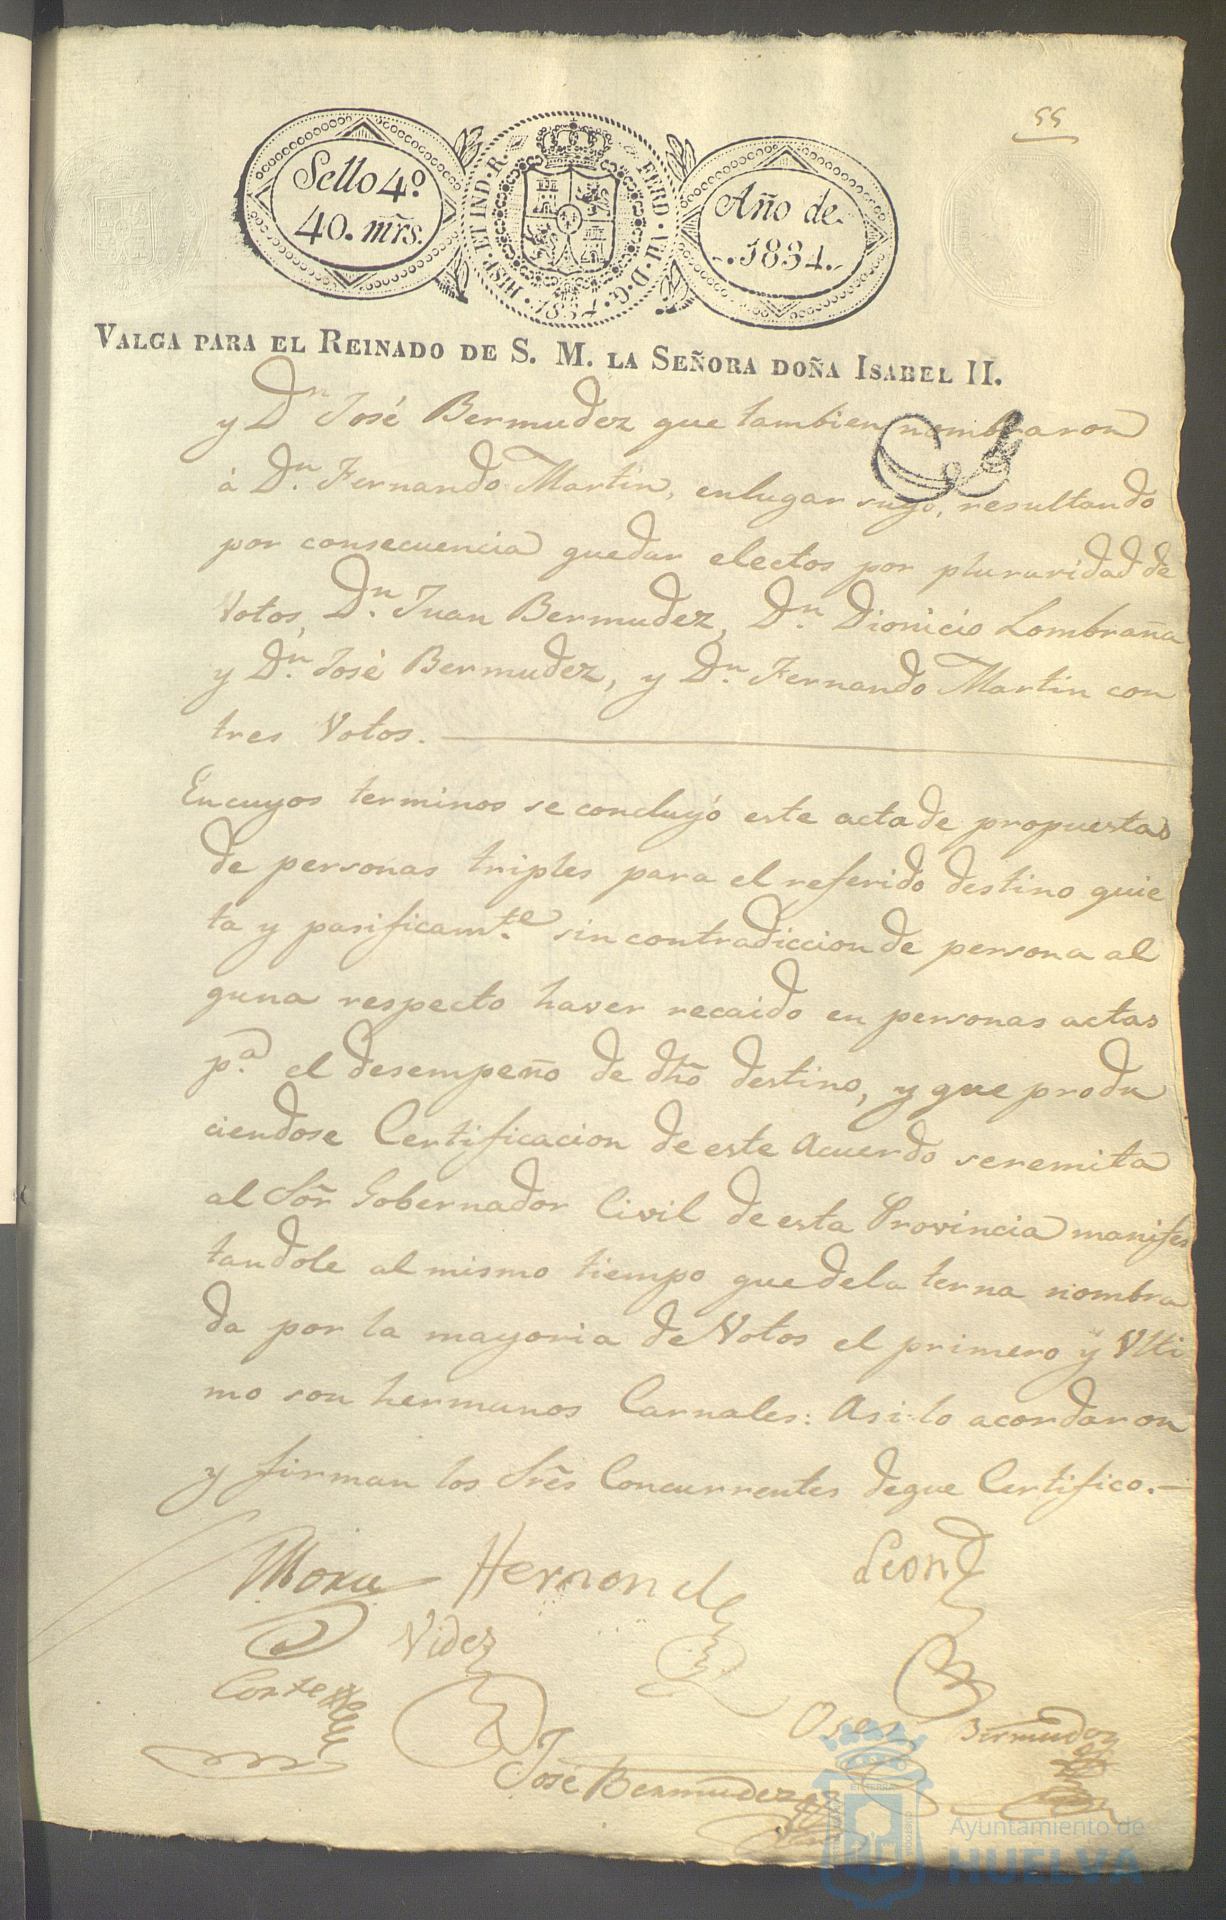 55
Sello 4º
40. mrs.
HISP. ET IND. R. FERD. VII. D. G. 1834.
Año de
1834.
VALGA PARA EL REINADO DE S. M. LA SEÑORA DOÑA ISABEL II.
y Dn José Bermudez que tambien nombraron
à Dn. Fernando Martin, enlugar suyo, resultando
por consecuencia quedar electos por pluraridad de
Votos, Dn. Juan Bermudez, Dn. Dionicio Lombraña
y Dn. José Bermudez, y Dn. Fernando Martin con
tres Votos.
En cuyos terminos se concluyó este acta de propuestas
de personas triples para el referido destino quie
ta y pasificamte. sin contradiccion de persona al
guna respecto haver recaido en personas actas
pa. el desempeño de dho destino, y que produ
ciendose Certificacion de este Acuerdo seremita
al Sor Gobernador Civil de esta Provincia manifes
tandole al mismo tiempo que dela terna nombra
da por la mayoria de Votos el primero y Ulti
mo son hermanos Carnales: Asi lo acordaron
y firman los Sres Concurrentes deque Certifico.
Mora Hernandez Leon
Videz
Cortes
Oses Bermudez
José Bermudez
Ayuntamiento de
HUELVA